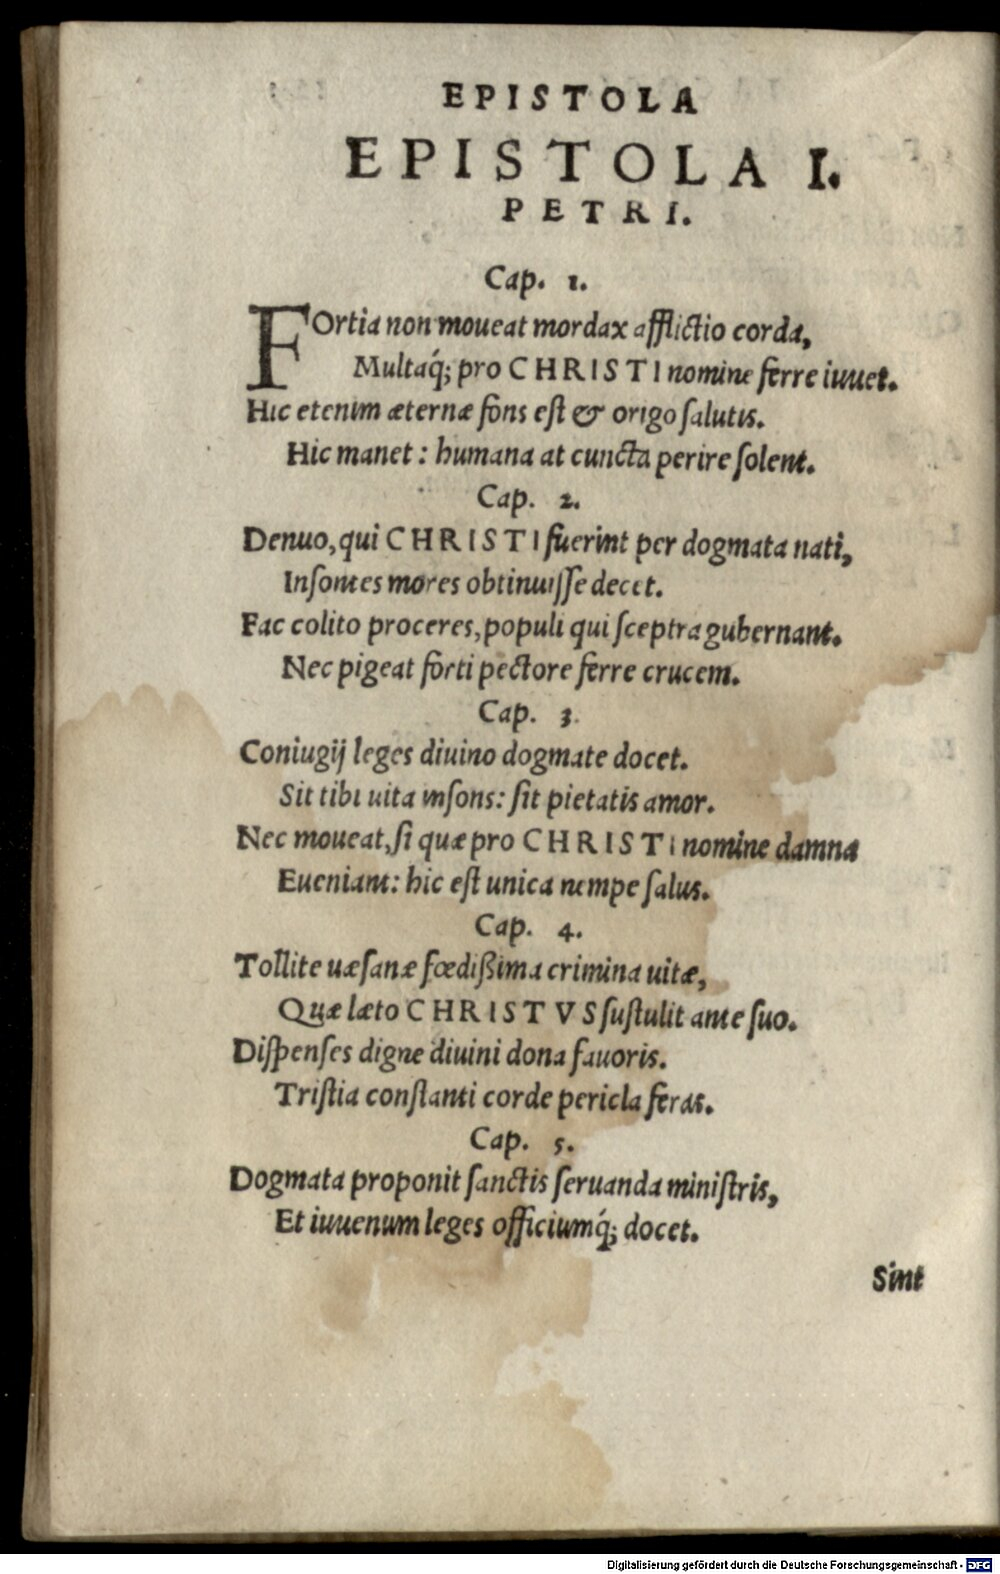 EPISTOLA
EPISTOLA I.
PETRI.
Cap. 1.
FOrtia non moueat mordax afflictio corda,
Multaq́; pro CHRISTI nomine ferre iuuet.
Hic etenim æternæ fons eſt & origo ſalutis.
Hic manet: humana at cuncta perire ſolent.
Cap. 2.
Denuo, qui CHRISTI fuerint per dogmata nati,
Inſontes mores obtinuiſſe decet.
Fac colito proceres, populi qui ſceptra gubernant.
Nec pigeat forti pectore ferre crucem.
Cap. 3.
Coniugij leges diuino dogmate docet.
Sit tibi uita inſons: ſit pietatis amor.
Nec moueat, ſi quæ pro CHRISTI nomine damna
Eueniant: hic eſt unica nempe ſalus.
Cap. 4.
Tollite uæſanæ fœdißima crimina uitæ,
Quæ læto CHRISTVS ſuſtulit ante ſuo.
Diſpenſes digne diuini dona fauoris.
Triſtia conſtanti corde pericla feras.
Cap. 5.
Dogmata proponit ſanctis ſeruanda miniſtris,
Et iuuenum leges officiumq́; docet.
Sint
Digitalisierung gefördert durch die Deutsche Forschungsgemeinschaft - DFG